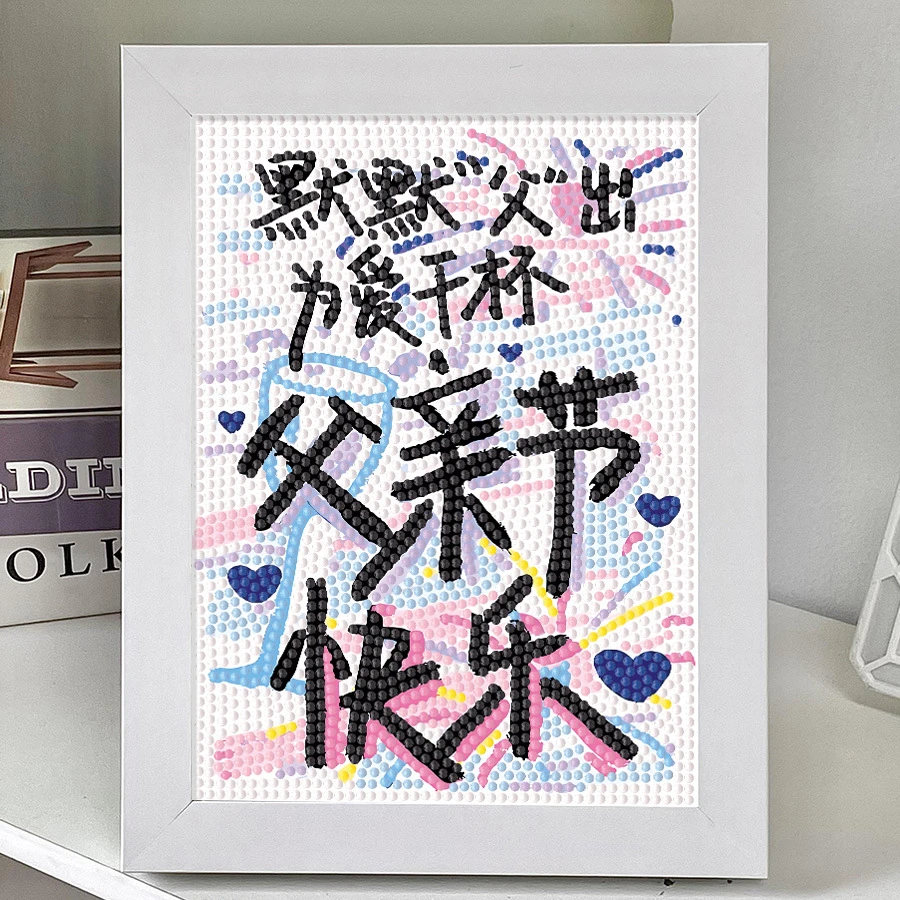 默默"父"出
为爱干杯
父亲节
快乐
DIN
OLK